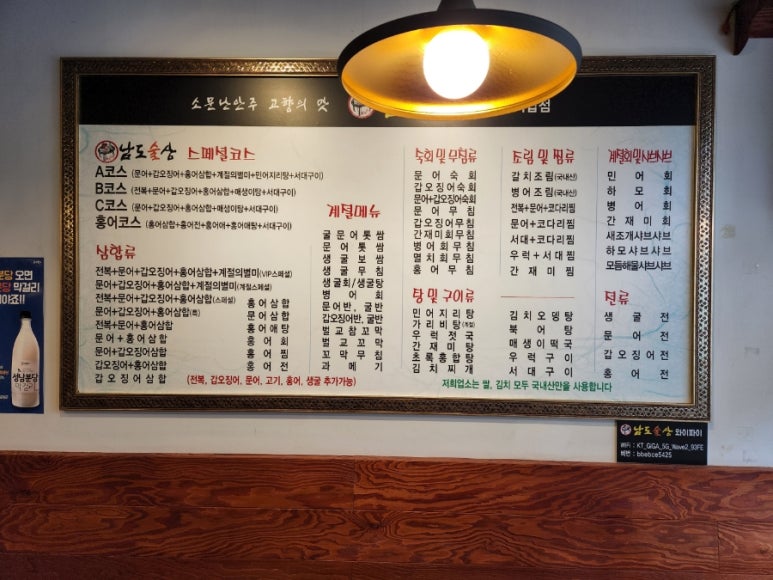 소문난안주 고향의 맛
남도술상 스페셜코스
A코스 (문어+갑오징어+홍어삼합+계절의별미+민어지리탕+서대구이)
B코스 (전복+문어+갑오징어+홍어삼합+매생이탕+서대구이)
C코스 (문어+갑오징어+홍어삼합+매생이탕+서대구이)
홍어코스 (홍어삼합+홍어전+홍어애+홍어애탕+서대구이)
삼합류
전복+문어+갑오징어+홍어삼합+계절의별미(VIP스페셜)
문어+갑오징어+홍어삼합+계절의별미(계절스페셜)
전복+문어+갑오징어+홍어삼합(스페셜)
문어+갑오징어+홍어삼합(특)
전복+문어+홍어삼합
문어+홍어삼합
문어+갑오징어삼합
갑오징어+홍어삼합
갑오징어삼합
홍어삼합
문어삼합
홍어애탕
홍어회
홍어찜
홍어전
홍어무침
(전복, 갑오징어, 문어, 고기, 홍어, 생굴 추가가능)
계절메뉴
굴문어톳쌈
문어톳쌈
생굴보쌈
생굴무침
생굴회/생굴탕
병어회
문어반, 굴반
갑오징어반, 굴반
벌교참꼬막
벌교꼬막
꼬막무침
과메기
숙회 및 무침류
문어숙회
갑오징어숙회
문어+갑오징어숙회
문어무침
갑오징어무침
간재미회무침
병어회무침
멸치회무침
홍어무침
탕 및 구이류
민어지리탕
가리비탕(계절)
우럭젓국
간재미탕
초록홍합탕
김치찌개
조림 및 찜류
갈치조림(국내산)
병어조림(국내산)
전복+문어+코다리찜
문어+코다리찜
서대+코다리찜
우럭+서대찜
간재미찜
김치오뎅탕
북어탕
매생이떡국
우럭구이
서대구이
계절회및샤브샤브
민어회
하모회
병어회
간재미회
새조개샤브샤브
하모샤브샤브
모듬해물샤브샤브
전류
생굴전
문어전
갑오징어전
홍어전
저희업소는 쌀, 김치 모두 국내산만을 사용합니다
남도술상 와이파이
WiFi : KT_GiGA_5G_Wave2_93FE
비번 : bbebce5425
분당 오면
당 막걸리
야죠!!
성남분당
막걸리